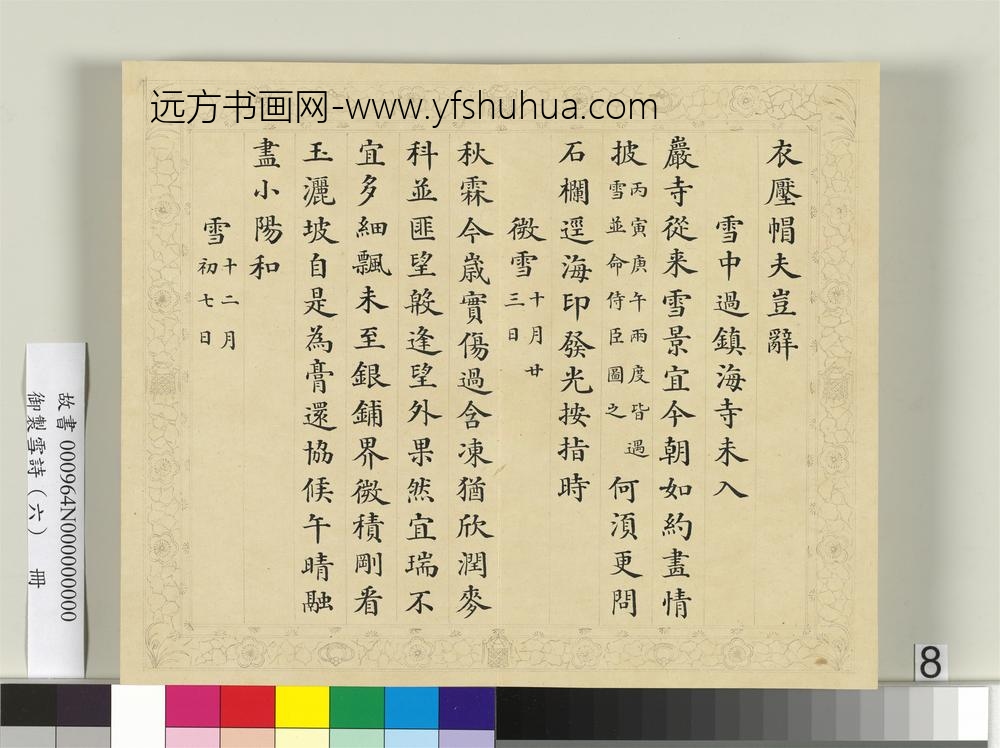 远方书画网-www.yfshuhua.com
衣壓帽夫豈辭
雪中過鎮海寺未入
巖寺從来雪景宜今朝如約盡情
披
丙寅庚午兩度皆過
雪並命侍臣圖之
何湏更問
石欄逕海印發光按指時
微雪
十月廿
三日
秋霖今歳實傷過含凍猶欣潤麥
科並匪望殷逢望外果然宜瑞不
宜多細飄未至銀鋪界微積剛看
玉灑坡自是為膏還協候午晴融
盡小陽和
雪
十二月
初七日
故書 000964N000000000
御製雪詩（六） 冊
8